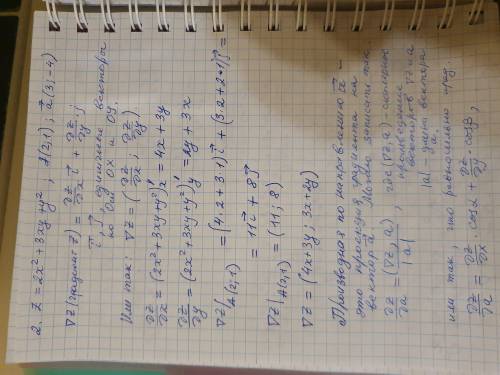 2. z = 2x² + 3xy + y² ; A(2;1); a⃗(3;-4)
∇z (градиент z) = ∂z/∂x i⃗ + ∂z/∂y j⃗
i⃗, j⃗ - единичные векторы
по осям Ox и Oy.
Или так: ∇z = (∂z/∂x ; ∂z/∂y)
∂z/∂x = (2x² + 3xy + y²)'x = 4x + 3y
∂z/∂y = (2x² + 3xy + y²)'y = 2y + 3x
∇z|A(2,1) = (4·2 + 3·1)i⃗ + (3·2 + 2·1)j⃗ =
= 11i⃗ + 8j⃗
∇z|A(2,1) = (11; 8)
∇z = (4x + 3y; 3x + 2y)
Производная по направлению a⃗ -
это проекция градиента на
вектор a⃗. Можно записать так:
∂z/∂a = (∇z, a)/|a| , где (∇z, a) - скалярное
произведение
векторов ∇z и a
|a| - длина вектора
a.
или так, что равносильно пред.
∂z/∂a = ∂z/∂x · cosα + ∂z/∂y · cosβ,